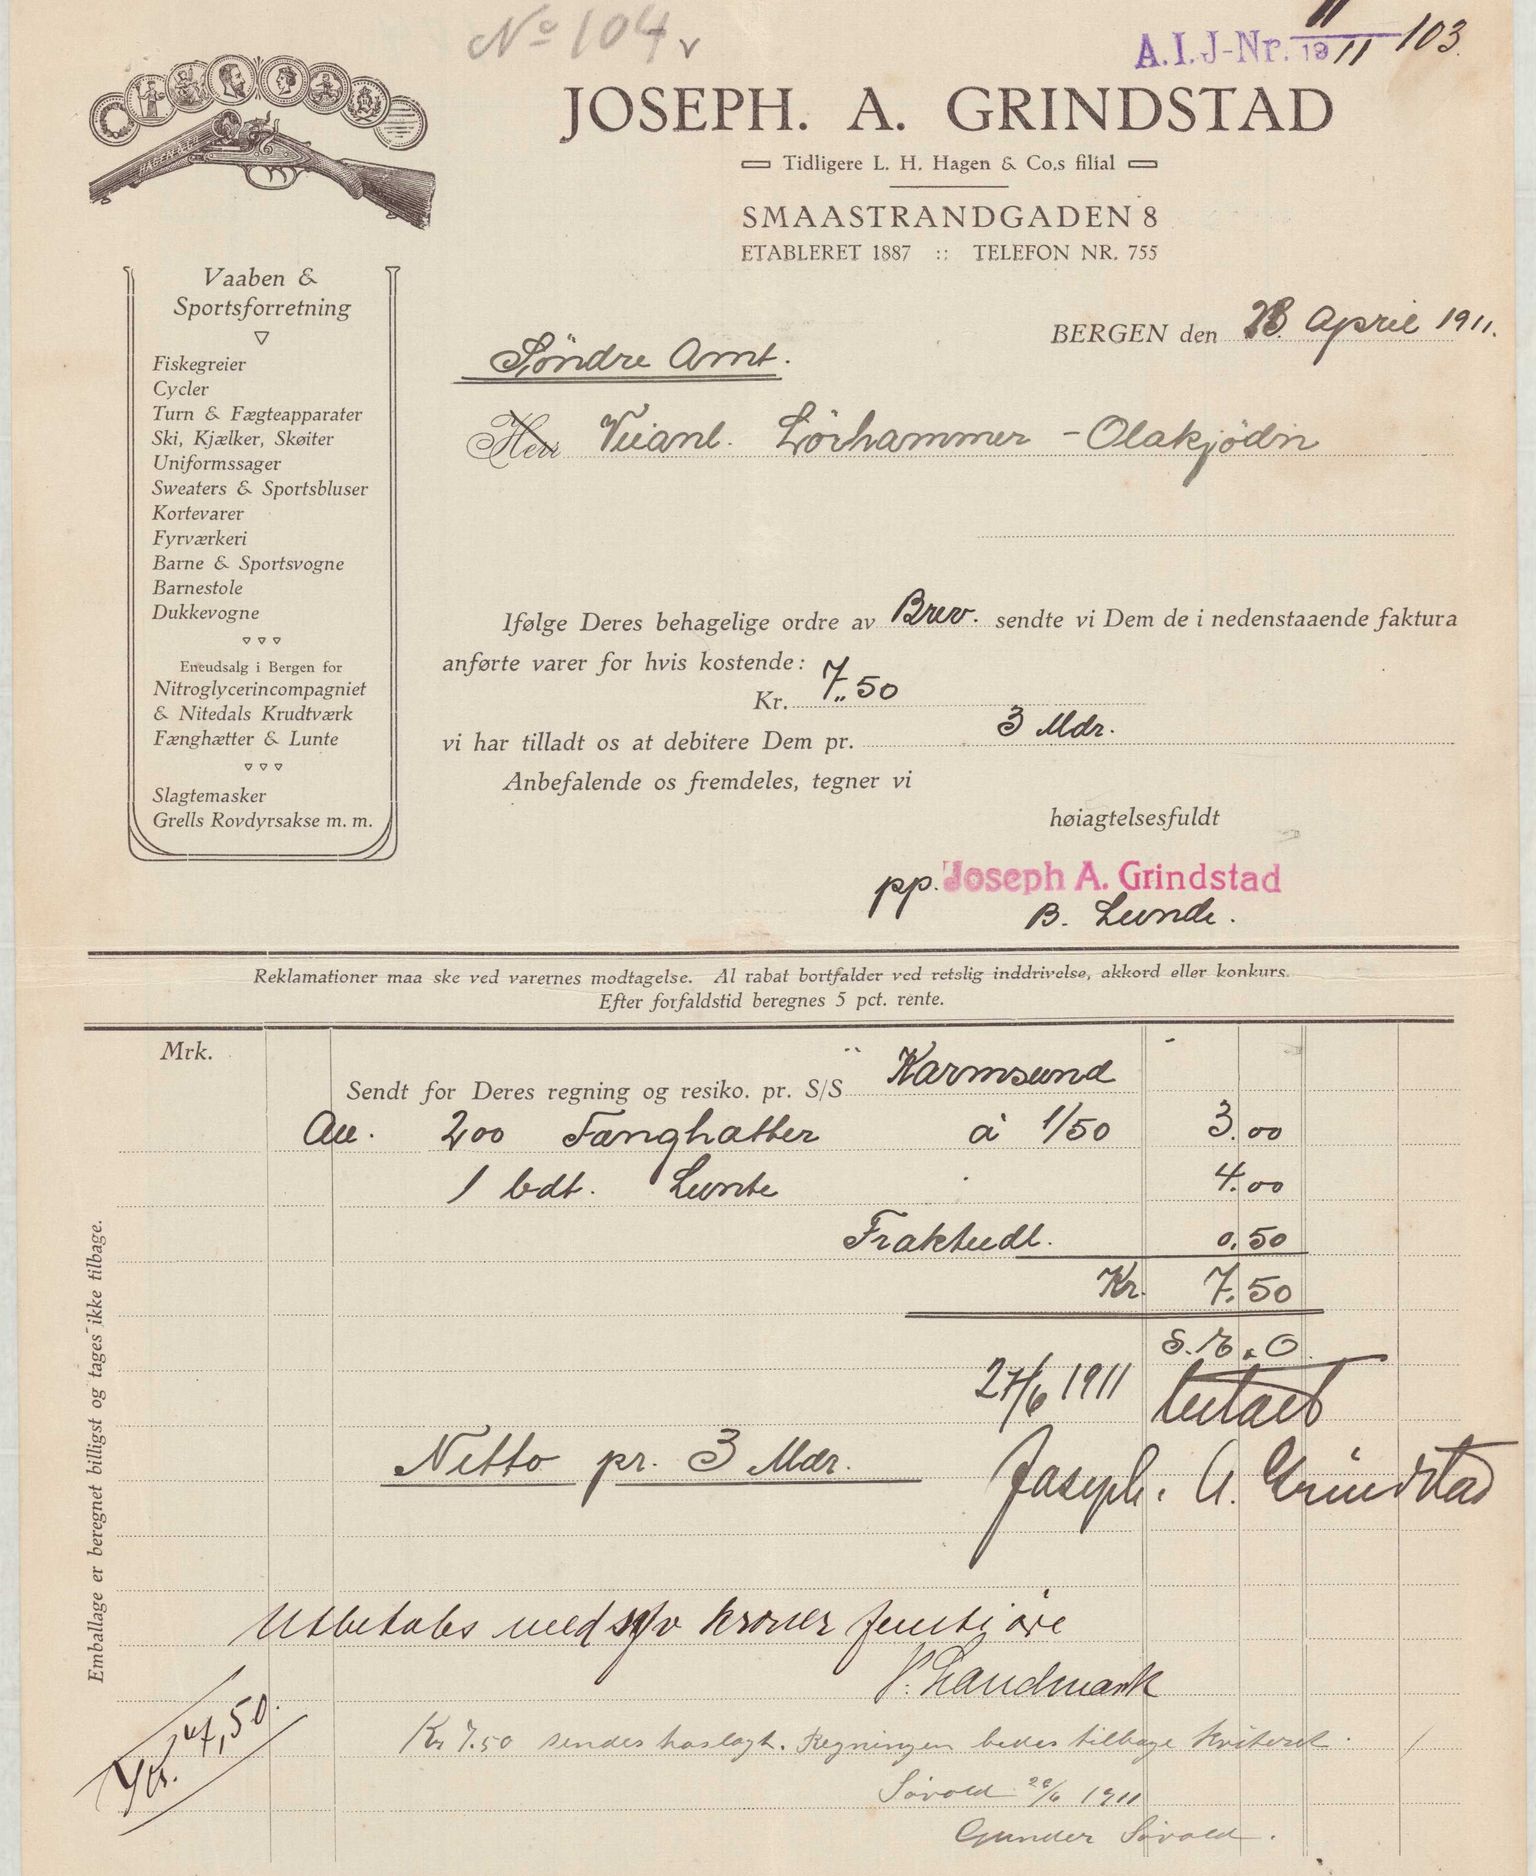 No 104 v
A.I.J-Nr. 11/1911 103.
HAGEN & Co
JOSEPH. A. GRINDSTAD
Tidligere L. H. Hagen & Co.s filial
SMAASTRANDGADEN 8
ETABLERET 1887 :: TELEFON NR. 755
Vaaben &
Sportsforretning
Fiskegreier
Cycler
Turn & Fægteapparater
Ski, Kjælker, Skøiter
Uniformssager
Sweaters & Sportsbluser
Kortevarer
Fyrværkeri
Barne & Sportsvogne
Barnestole
Dukkevogne
Eneudsalg i Bergen for
Nitroglycerincompagniet
& Nitedals Krudtværk
Fænghætter & Lunte
Slagtemasker
Grells Rovdyrsakse m. m.
BERGEN den 28. April 1911.
Söndre Amt.
Herr Veianl. Lörhammer - Olakjödn
Ifølge Deres behagelige ordre av Brev. sendte vi Dem de i nedenstaaende faktura
anførte varer for hvis kostende:
Kr. 7,, 50
vi har tilladt os at debitere Dem pr. 3 Mdr.
Anbefalende os fremdeles, tegner vi
høiagtelsesfuldt
pp. Joseph A. Grindstad
B. Lunde.
Reklamationer maa ske ved varernes modtagelse. Al rabat bortfalder ved retslig inddrivelse, akkord eller konkurs.
Efter forfaldstid beregnes 5 pct. rente.
Mrk.
Sendt for Deres regning og resiko. pr. S/S Karmsund
200 Fænghætter à 1/50 3.00
1 bdt. Lunte 4.00
Fraktudl. 0.50
Kr. 7.50
S. E. & O.
27/6 1911 betalt
Netto pr. 3 Mdr.
Joseph. A. Grindstad
Emballage er beregnet billigst og tages ikke tilbage.
Utbetales med syv kroner femti øre
Landmark
Kr. 7,50.
Kr 7.50 sendes havlagt. Regningen bedes tilbage kvitteret.
Sövold 20/6 1911
Gunder Sövold.